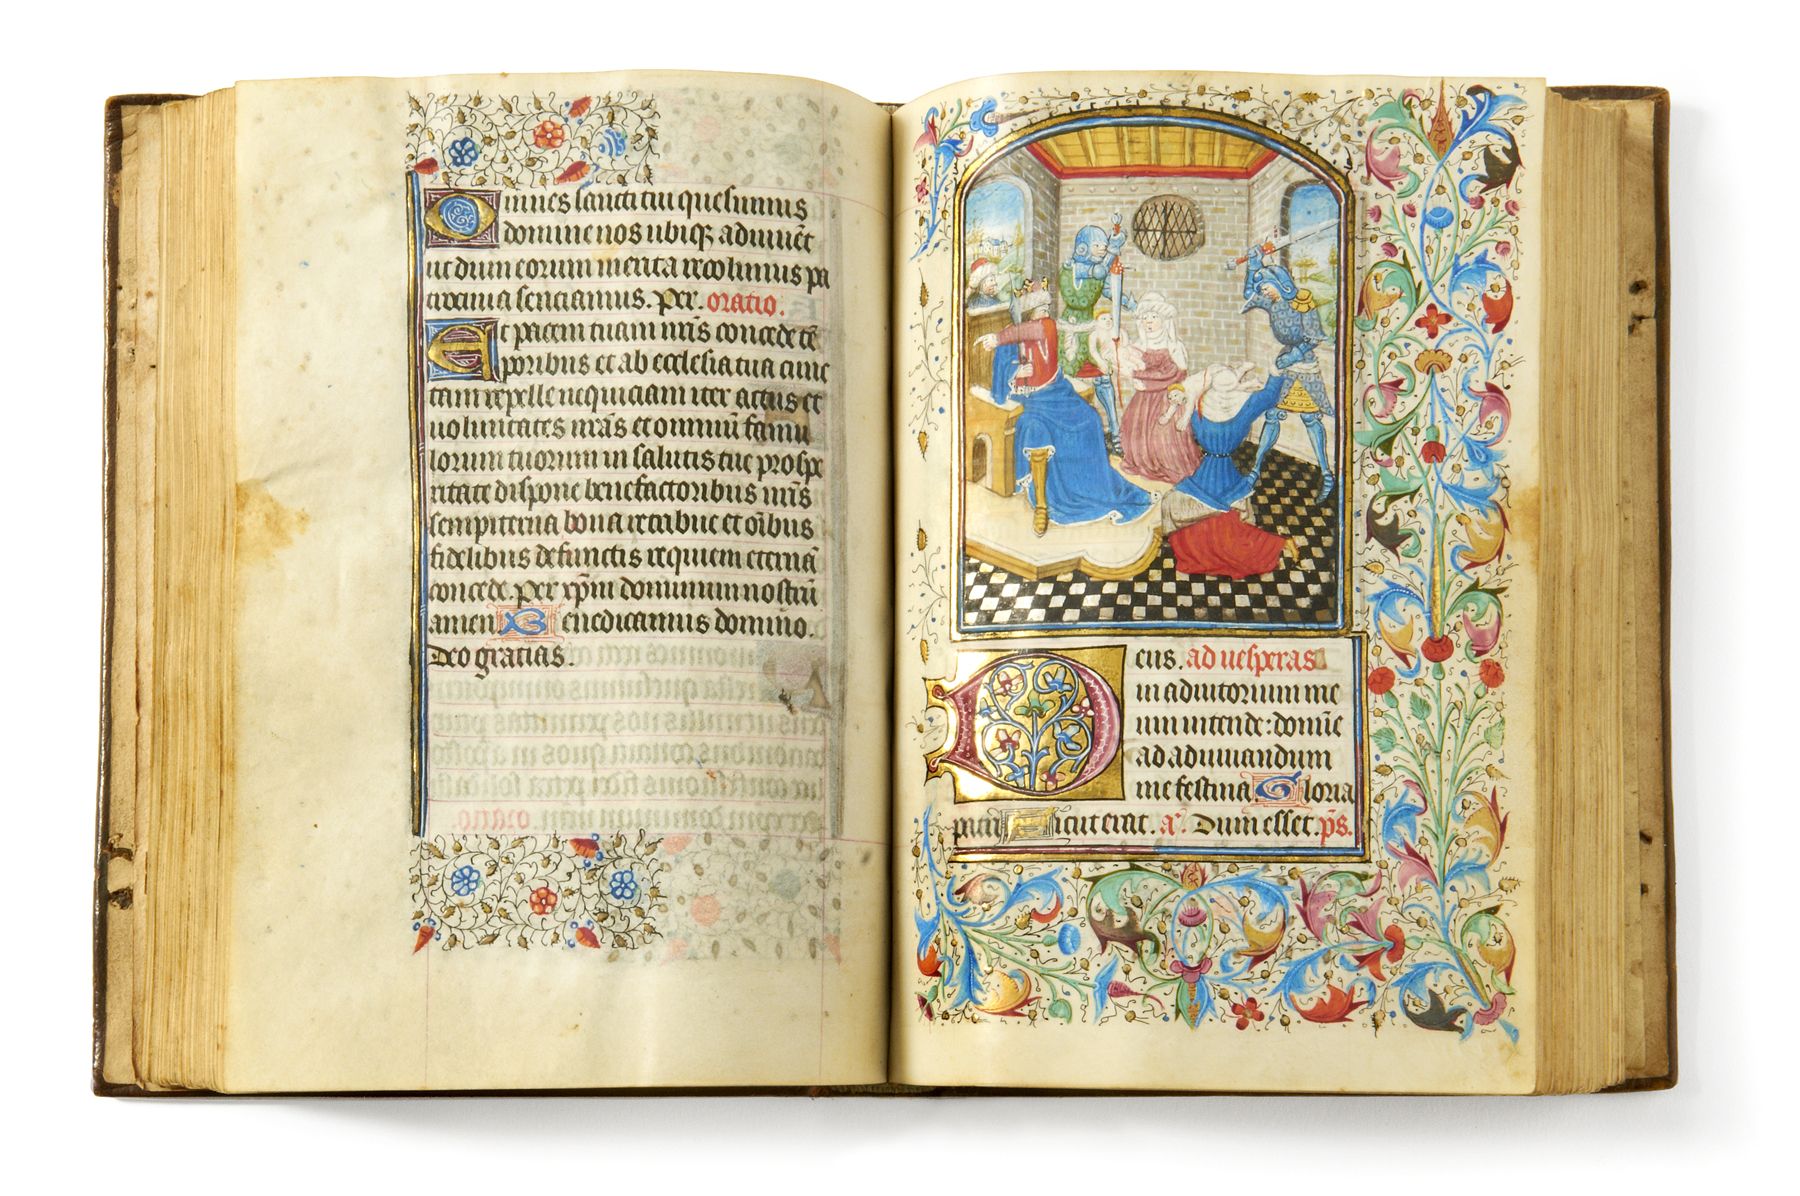 Omnes sancti tui quesumus
domine nos ubiqꝫ adiuuēt
ut dum eorum merita recolimus pa
trocinia sentiamus. per. oratio.
Et pacem tuam nr̄is concede tē
poribus et ab ecclesia tua cunc
tam repelle nequiciam iter actus et
uoluntates nr̄as et omniū famu
lorum tuorum in salutis tue prospe
ritate dispone benefactoribus nr̄is
sempiterna bona retribue et oībus
fidelibus defunctis requiem eternā
concede. per xp̄m dominum nostrū
amen Benedicamus domino.
Deo gratias.
Deus. ad uesperas
in adiutorium me
um intende: domine
ad adiuuandum
me festina. Gloria
patri Sicut erat. aʳ. Dum esset. ps̄.